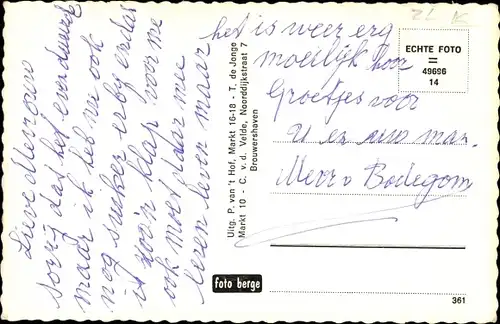 Lieve Mevrouw
sorry dat het even duurde
maar ik heb nu ook
nog suiker erby en das
is zoo'n klap voor me
ook moet daar mee
leren leven maar
het is weer erg
moeilijk hoor
Groetjes voor
U en uw man.
Mevr v Bodegom
Uitg. P. van 't Hof, Markt 16-18 - T. de Jonge
Markt 10 - C. v.d. Velde, Noorddijkstraat 7
Brouwershaven
ECHTE FOTO
=
49696
14
foto berge
361